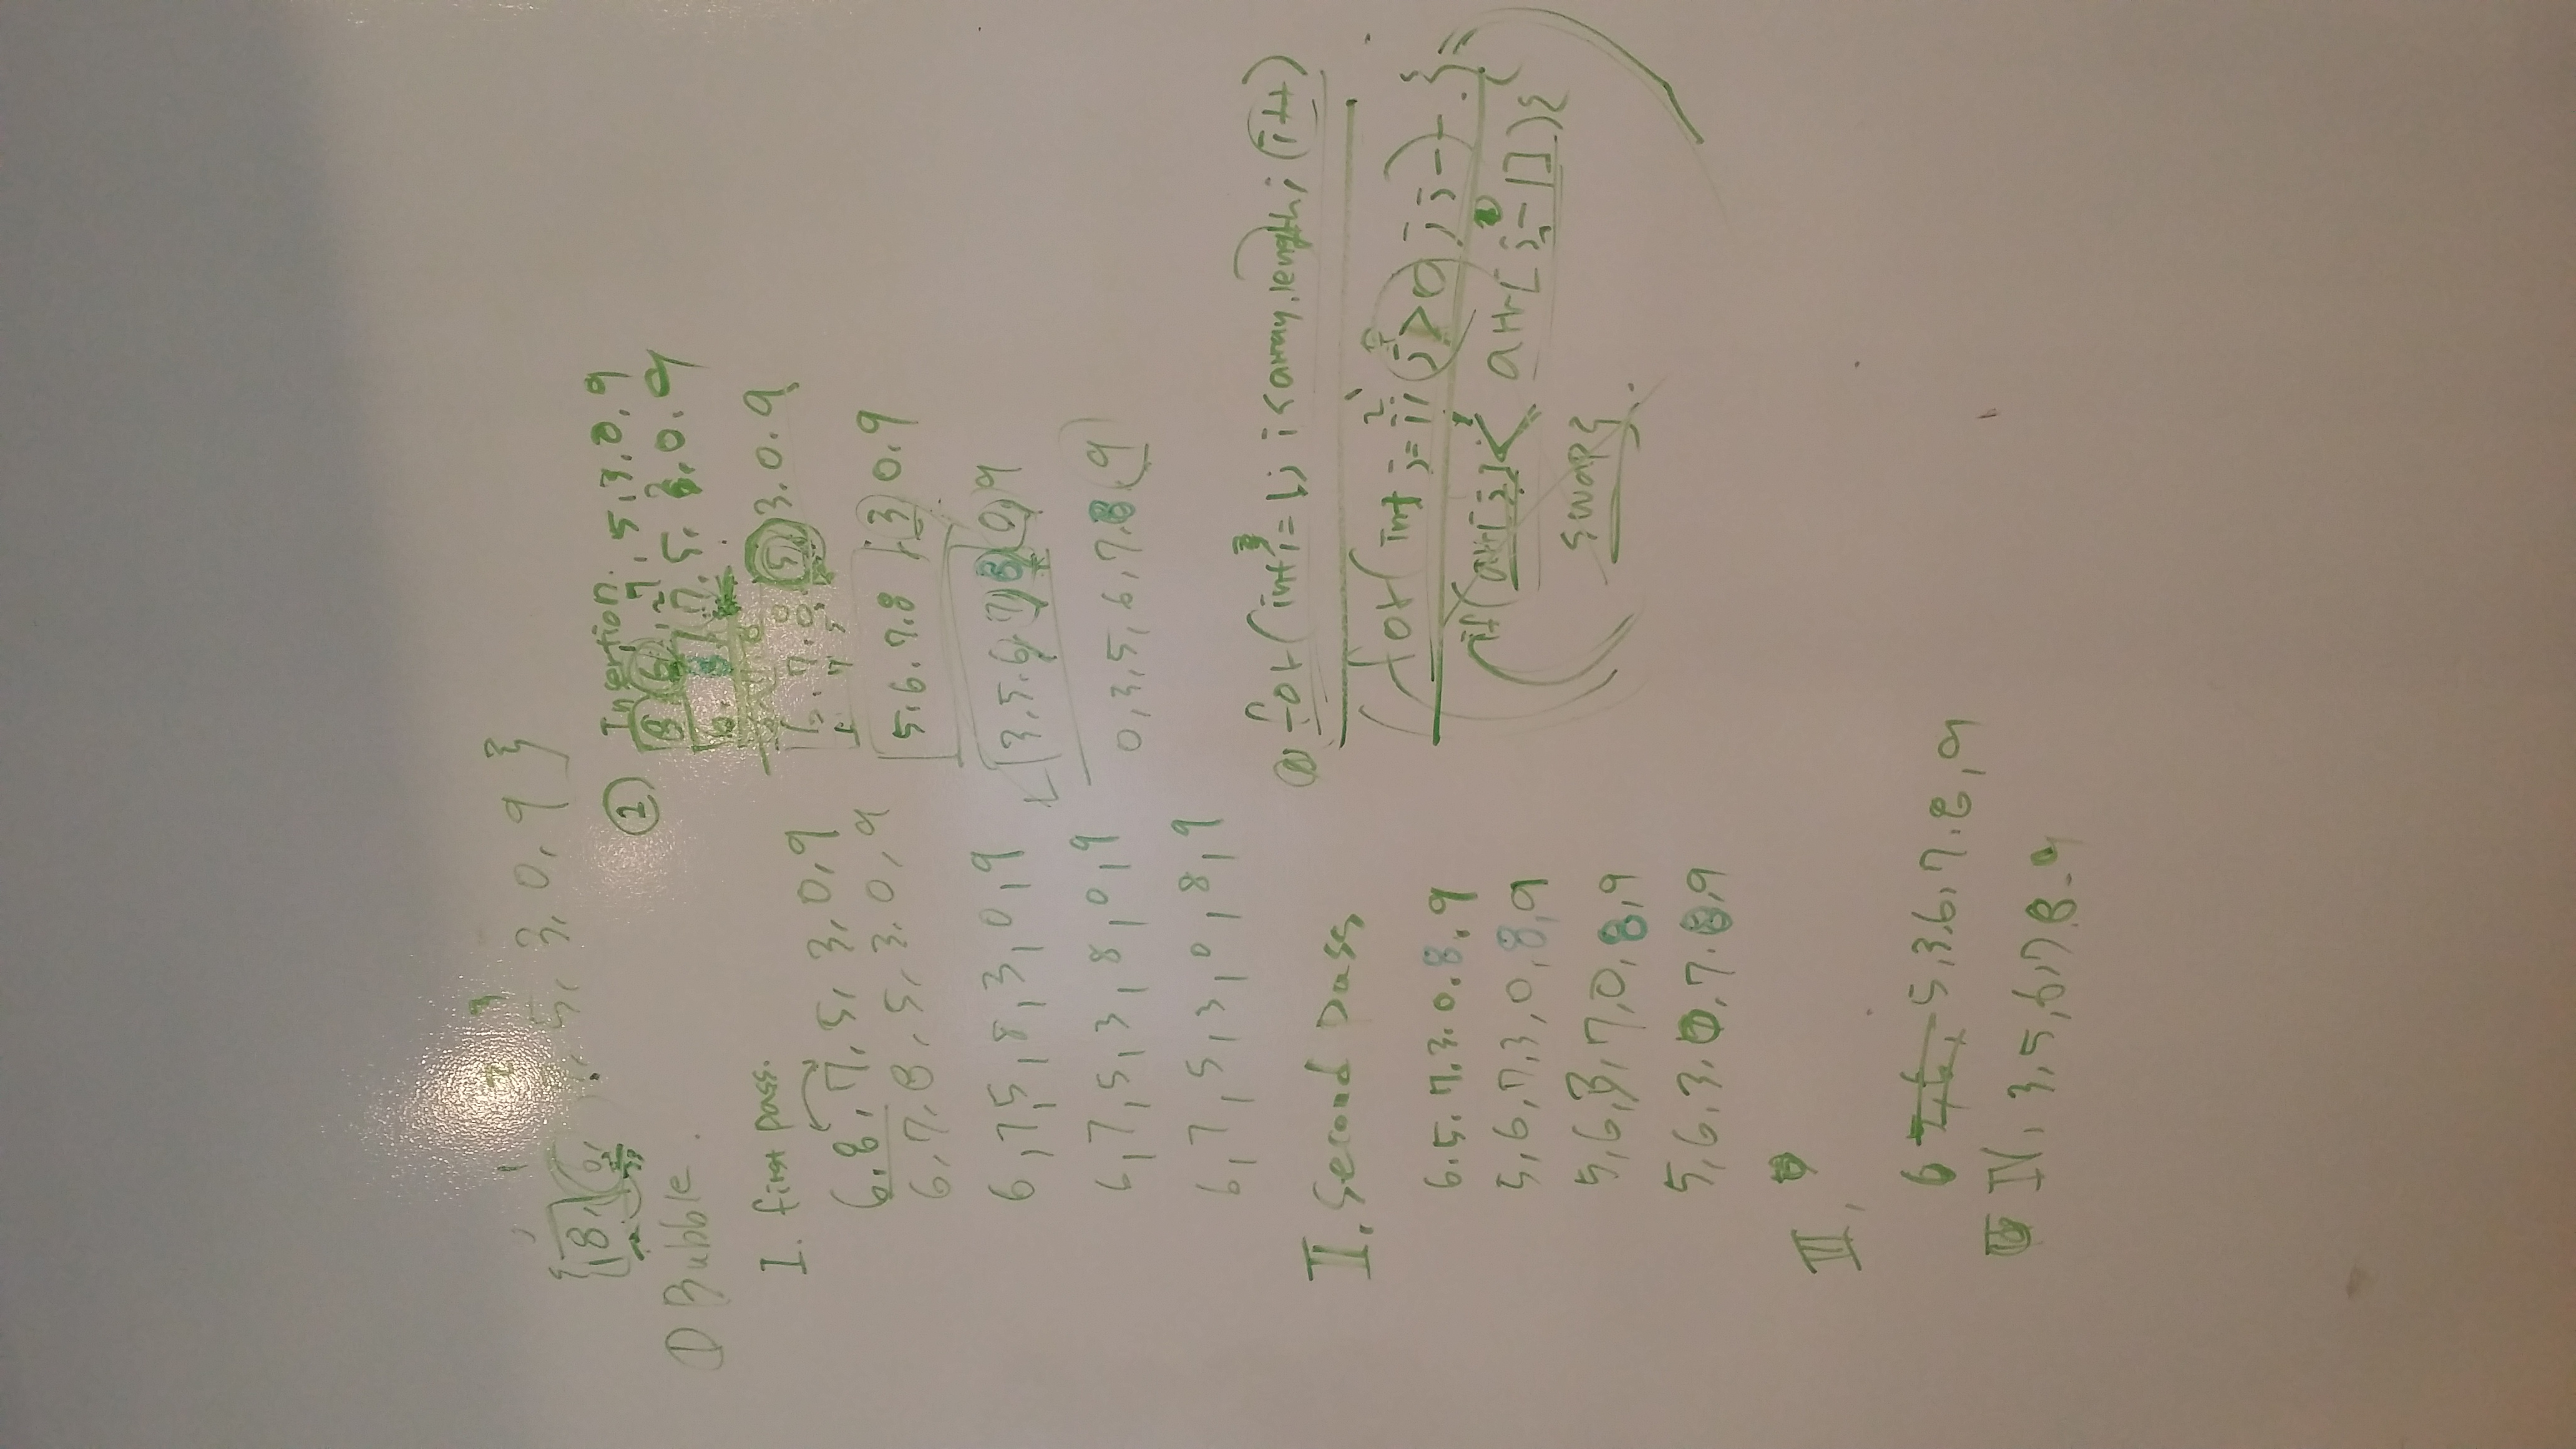 1 2 3
{8, 6, 7, 5, 3, 0, 9}
① Bubble.
I. first pass.
6, 8, 7, 5, 3, 0, 9
6, 7, 8, 5, 3, 0, 9
6, 7, 5, 8, 3, 0, 9
6, 7, 5, 3, 8, 0, 9
6, 7, 5, 3, 0, 8, 9
II. Second pass
6. 5. 7. 3. 0. 8. 9
5, 6, 7, 3, 0, 8, 9
5, 6, 3, 7, 0, 8, 9
5, 6, 3, 0, 7. 8, 9
III.
5, 3, 6, 7. 8, 9
IV. 3, 5, 6, 7 8. 9
② Insertion.
8 6, 7, 5, 3, 0, 9
6. 8 7. 5. 3, 0. 9
6. 7. 8. 5 3. 0. 9
5. 6. 7. 8 3 0. 9
3, 5. 6, 7, 8 0, 9
0, 3, 5, 6, 7, 8 9
for(int i=1; i<array.length; i++)
for(int j=i; j>0; j--}
if(arr[j]< arr[j-1]){
swap}